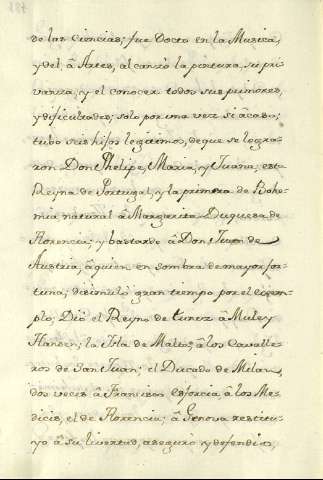 de las Ciencias; fue Docto en la Musica,
y del â Artes, alcanzó la pintura, su pri-
vanza, y el conocer todos sus primores,
y dificultades; solo por una vez se casò;
tubo seis hijos legitimos, de que se logra-
ron Don Phelipe, Maria, y Juana; esta
Reyna de Portugal, y la primera de Bohe-
mia natural â Margarita Duquesa de
Florencia; y bastardo â Don Juan de
Austria, â quien en sombra de mayor for-
tuna; disimuló gran tiempo por el exem-
plo; Diò el Reyno de tunez â Muley
Hansen; la Isla de Malta, â los Cavalle-
ros de San Juan; el Ducado de Milan,
dos veces â Francisco Esforcia â los Me-
dicis, el de Florencia; â Genova restitu-
yo â su livertad, aseguro y defendio,